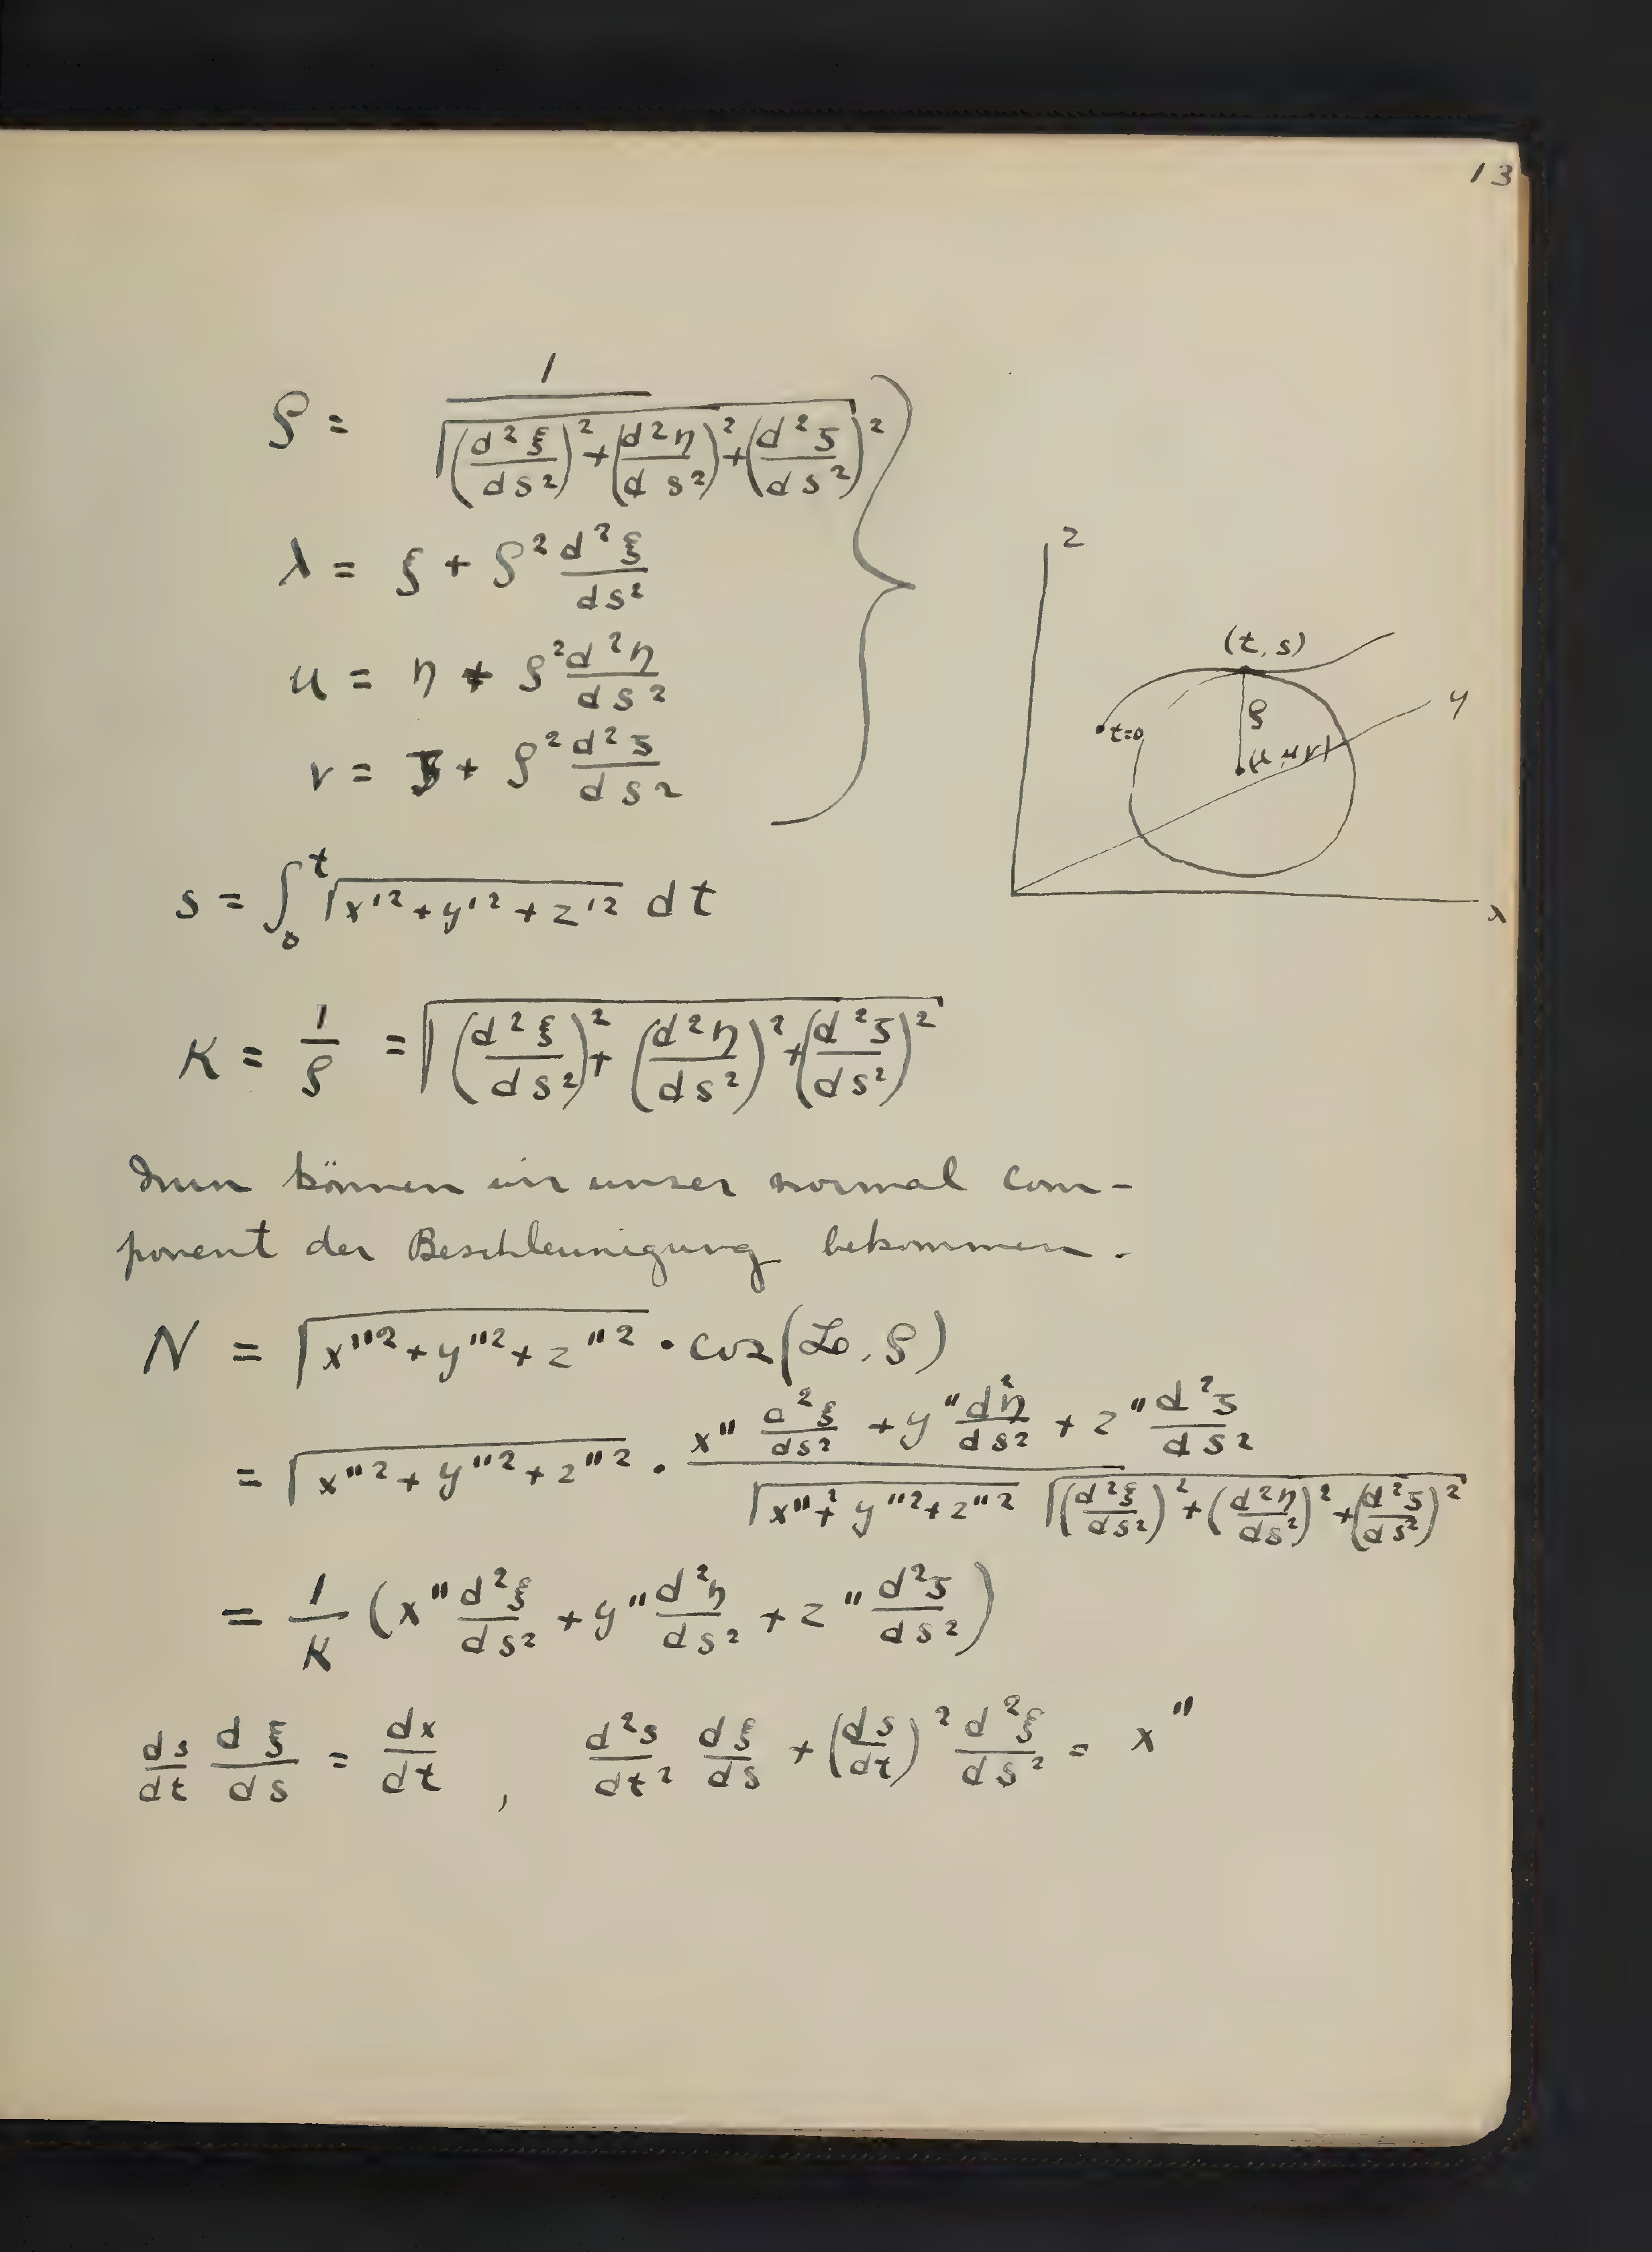 13
ρ = 1 / √((d²ξ/ds²)² + (d²η/ds²)² + (d²ζ/ds²)²)
λ = ξ + ρ² d²ξ/ds²
μ = η + ρ² d²η/ds²
ν = ζ + ρ² d²ζ/ds²
z
(t, s)
y
ρ
t=0
x
s = ∫₀ᵗ √(x'² + y'² + z'²) dt
K = 1/ρ = √((d²ξ/ds²)² + (d²η/ds²)² + (d²ζ/ds²)²)
Nun können wir unser normal com-
ponent der Beschleunigung bekommen.
N = √(x''² + y''² + z''²) · cos( , ρ)
= √(x''² + y''² + z''²) · (x'' d²ξ/ds² + y'' d²η/ds² + z'' d²ζ/ds²) / (√(x''² + y''² + z''²) √((d²ξ/ds²)² + (d²η/ds²)² + (d²ζ/ds²)²))
= 1/K (x'' d²ξ/ds² + y'' d²η/ds² + z'' d²ζ/ds²)
ds/dt dξ/ds = dx/dt , d²s/dt² dξ/ds + (ds/dt)² d²ξ/ds² = x''